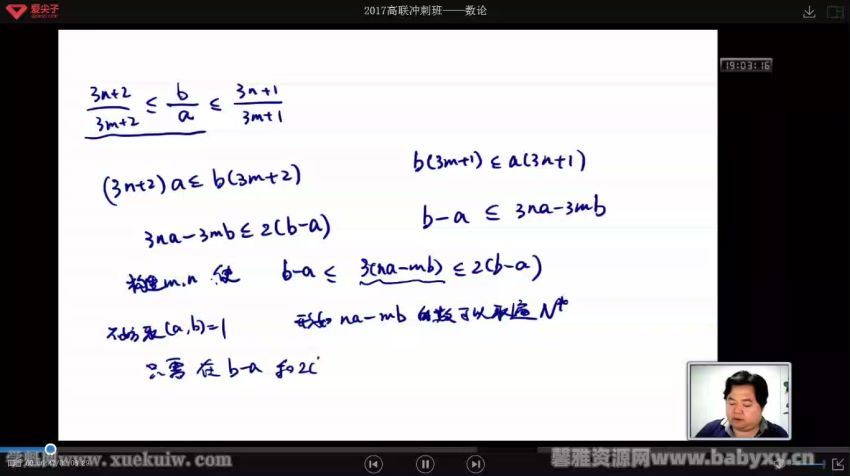 爱尖子
2017高联冲刺班——数论
19:03:16
(3n+2)/(3m+2) ≤ b/a ≤ (3n+1)/(3m+1)
(3n+2)a ≤ b(3m+2)
b(3m+1) ≤ a(3n+1)
3na-3mb ≤ 2(b-a)
b-a ≤ 3na-3mb
构造m,n 使 b-a ≤ 3(na-mb) ≤ 2(b-a)
不妨设(a,b)=1 形如 na-mb 的数可以取遍 N*
只需 在 b-a 和 2(
www.xuekuiw.com
馨雅资源网www.babyxy.cn